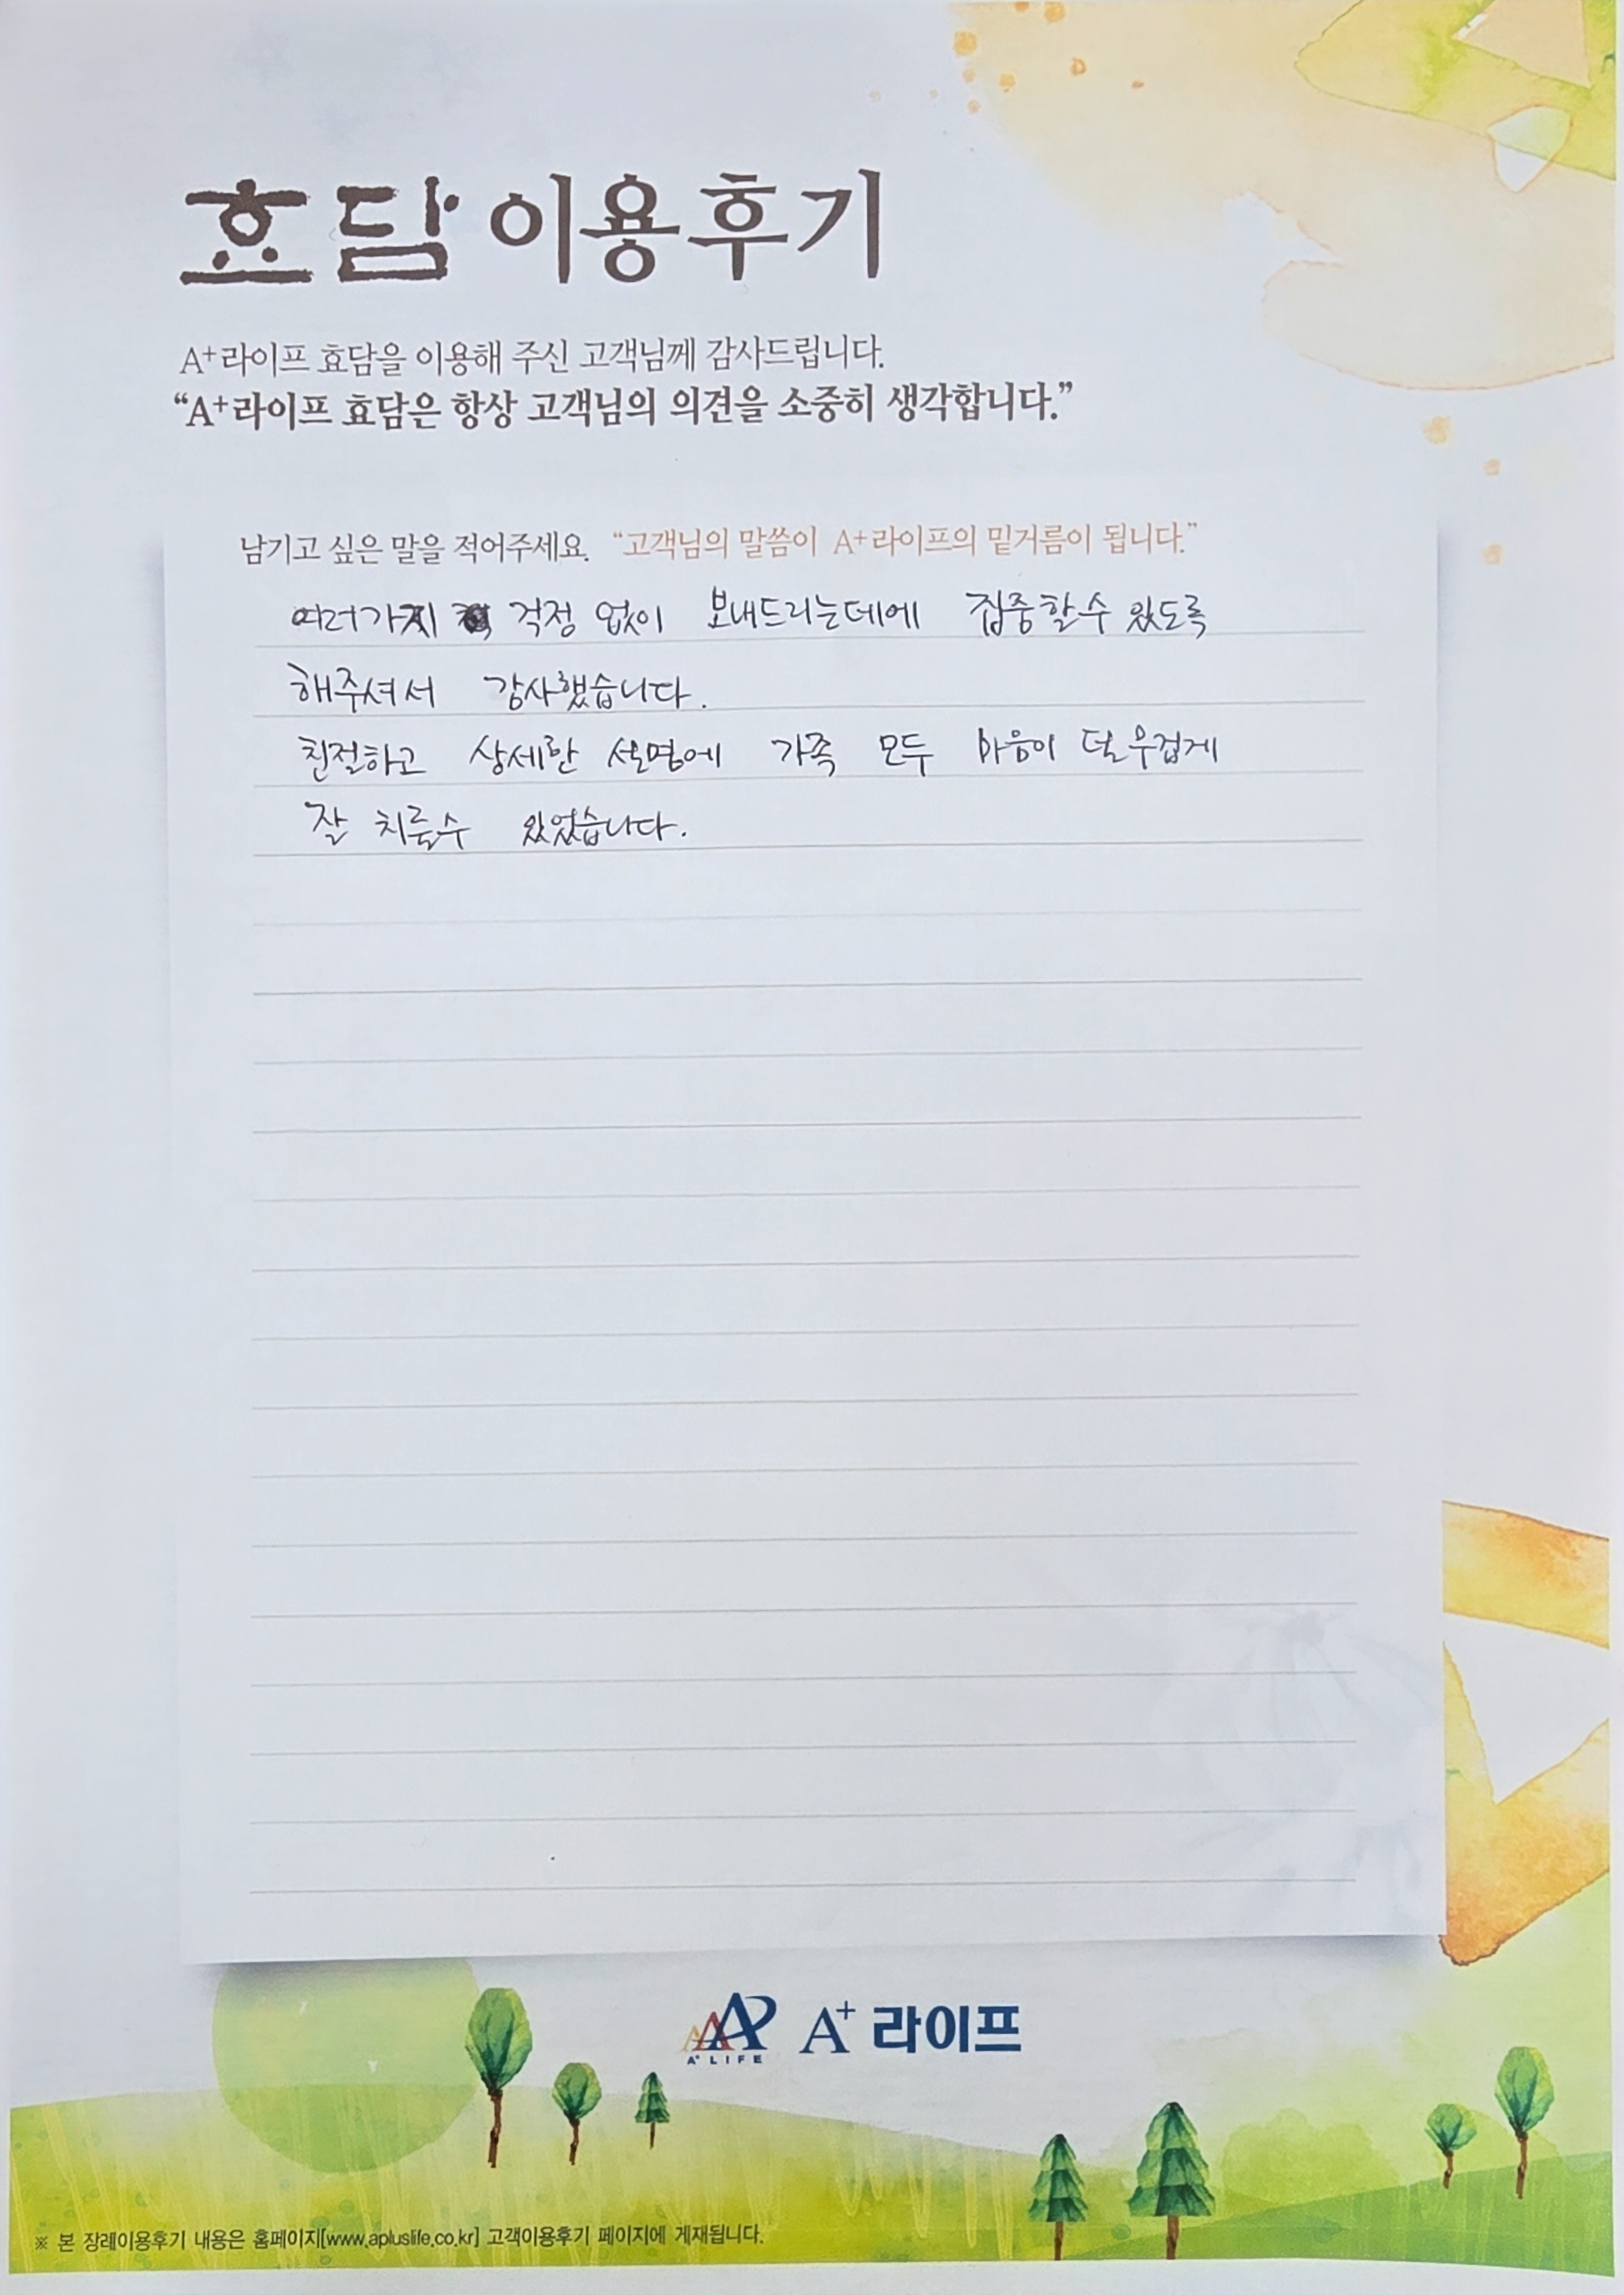 효담 이용후기
A+라이프 효담을 이용해 주신 고객님께 감사드립니다.
“A+라이프 효담은 항상 고객님의 의견을 소중히 생각합니다.”
남기고 싶은 말을 적어주세요. “고객님의 말씀이 A+라이프의 밑거름이 됩니다.”
여러가지 걱정 없이 보내드리는데에 집중할수 있도록
해주셔서 감사했습니다.
친절하고 상세한 설명에 가족 모두 마음이 덜 무겁게
잘 치룰수 있었습니다.
A+ LIFE A+ 라이프
※ 본 장례이용후기 내용은 홈페이지[www.apluslife.co.kr] 고객이용후기 페이지에 게재됩니다.